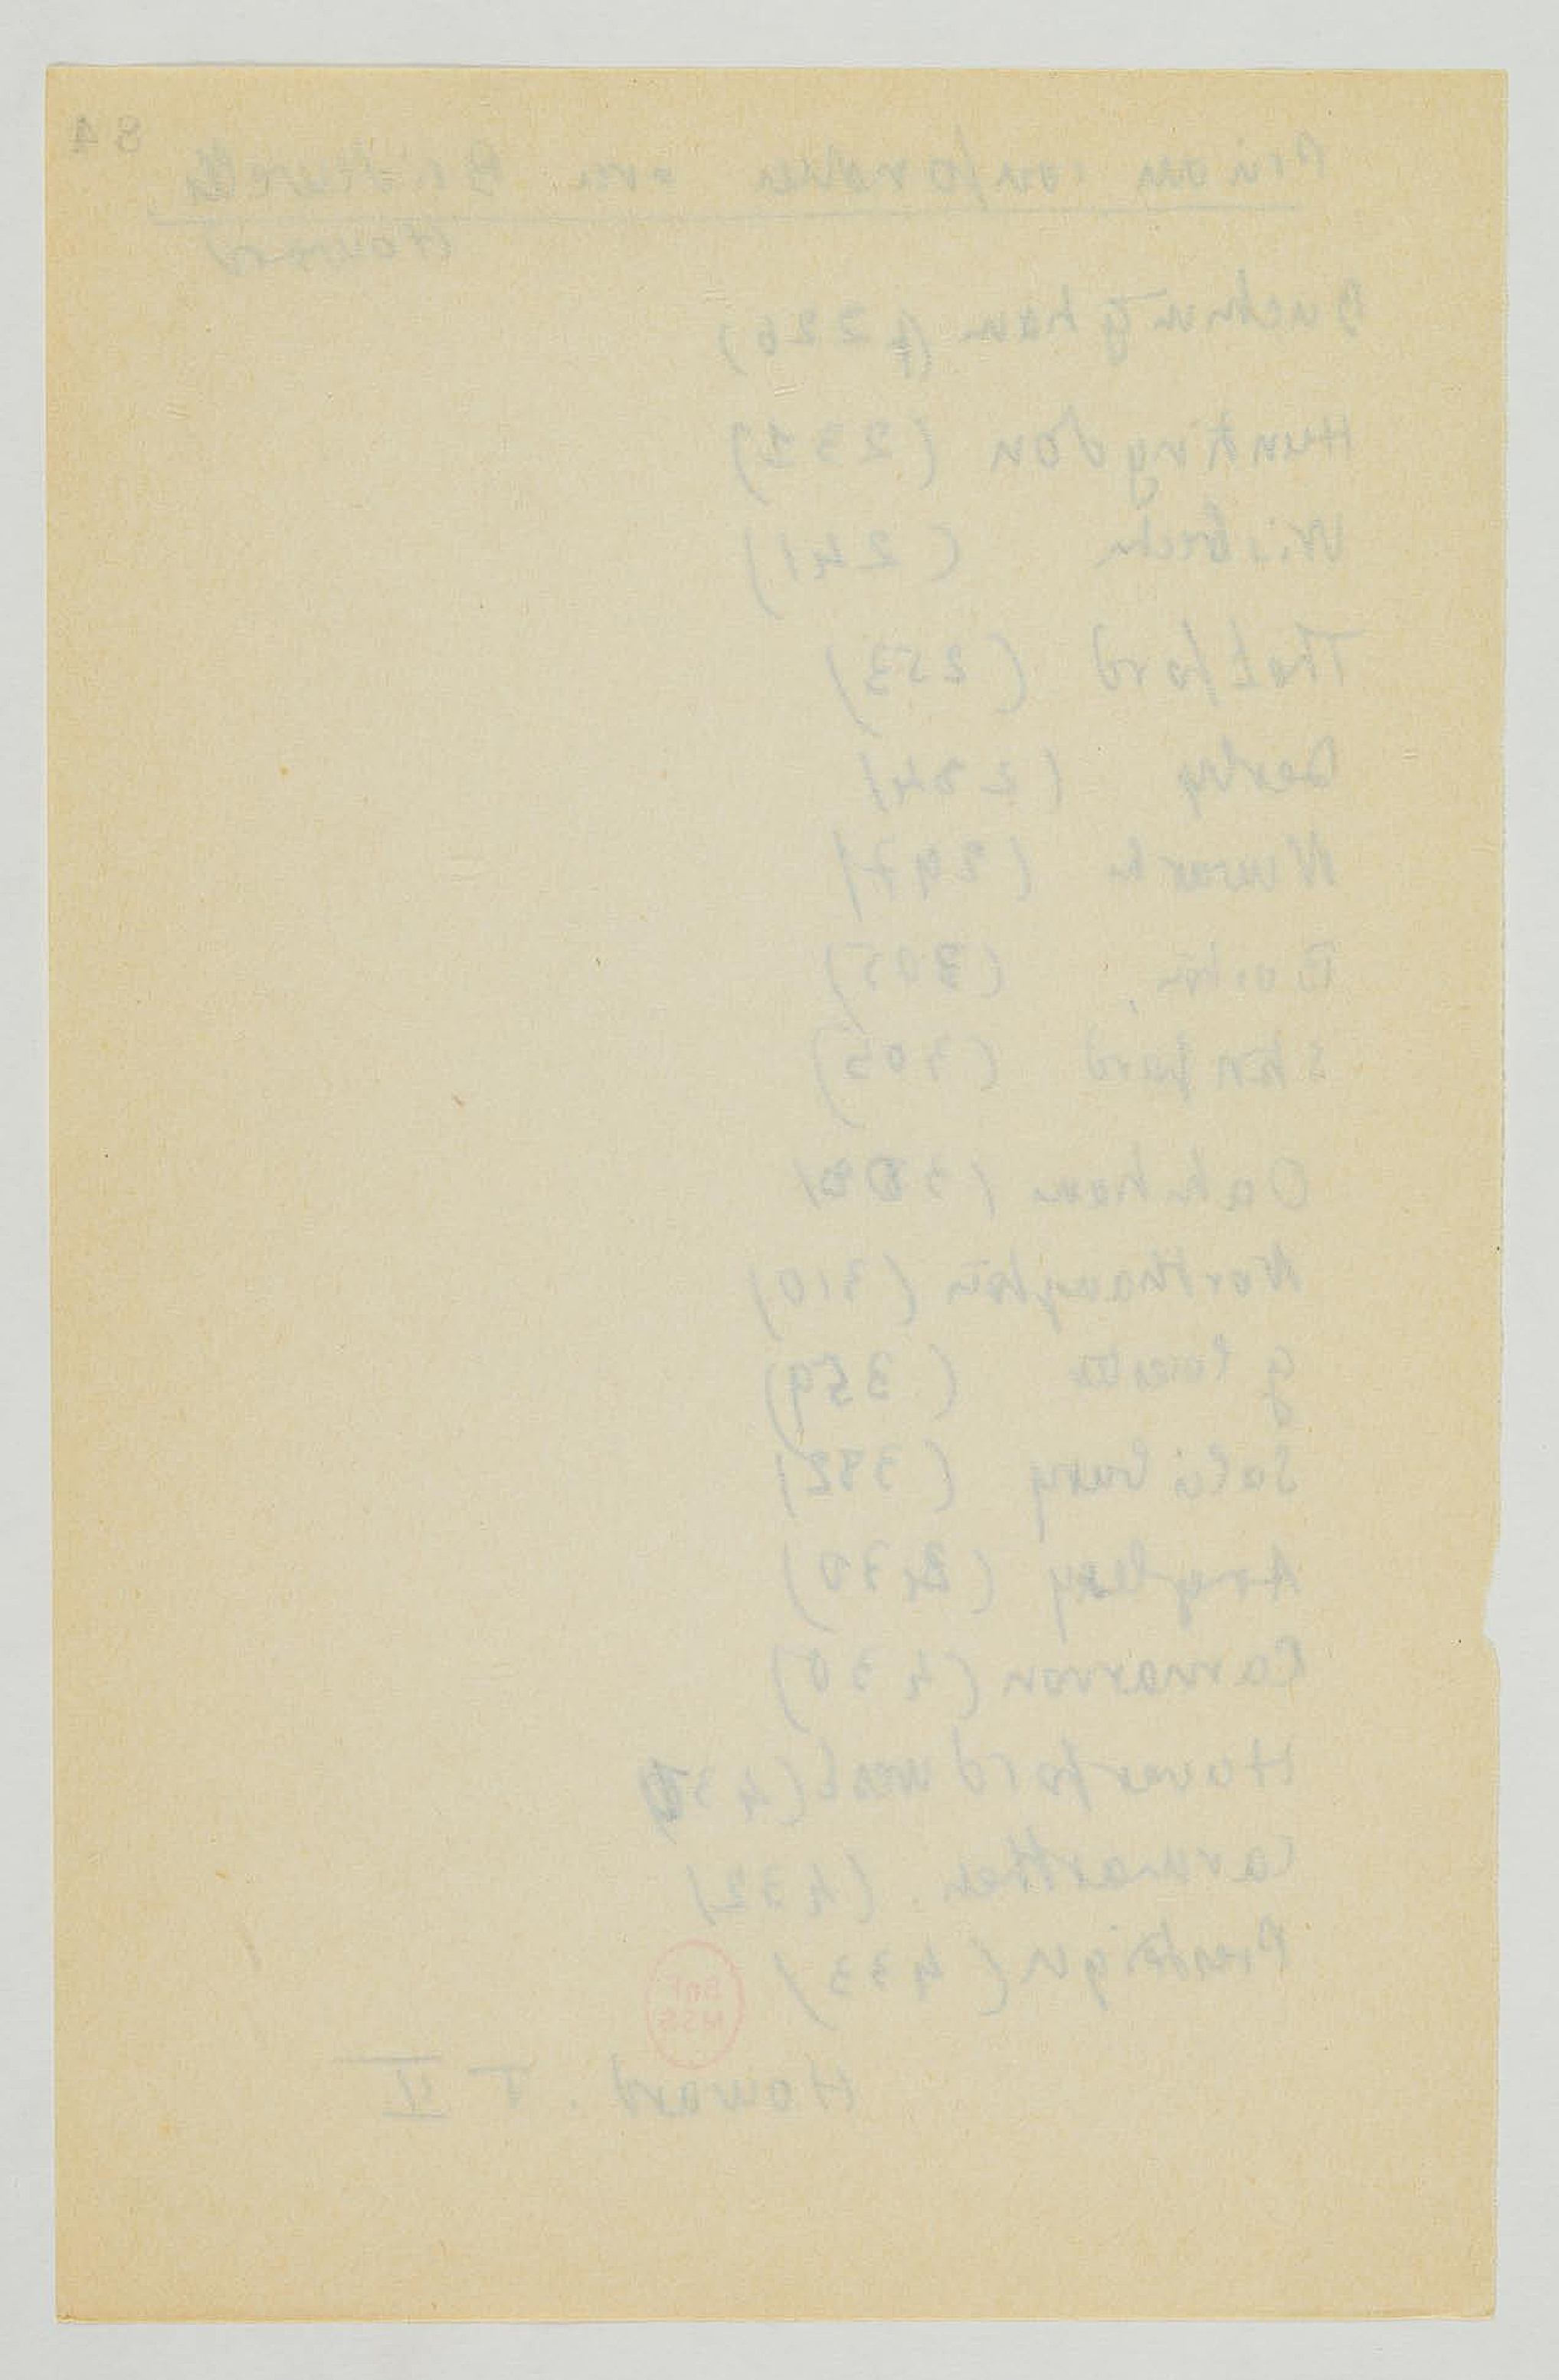 84
Prison conforme au Bentham
Howard
Buckingham (p 226)
Huntingdon (231)
Wisbech (241)
Thetford (253)
Derby (284)
Newark (297)
Boston (305)
Stanford (305)
Oakham (308)
Northampton (310)
Gloucester (359)
Salisbury (382)
Anglesey (430)
Carnarvon (430)
Haverfordwest (431)
Carmarthen (432)
Presteign (433)
BnF
MSS
Howard. T II